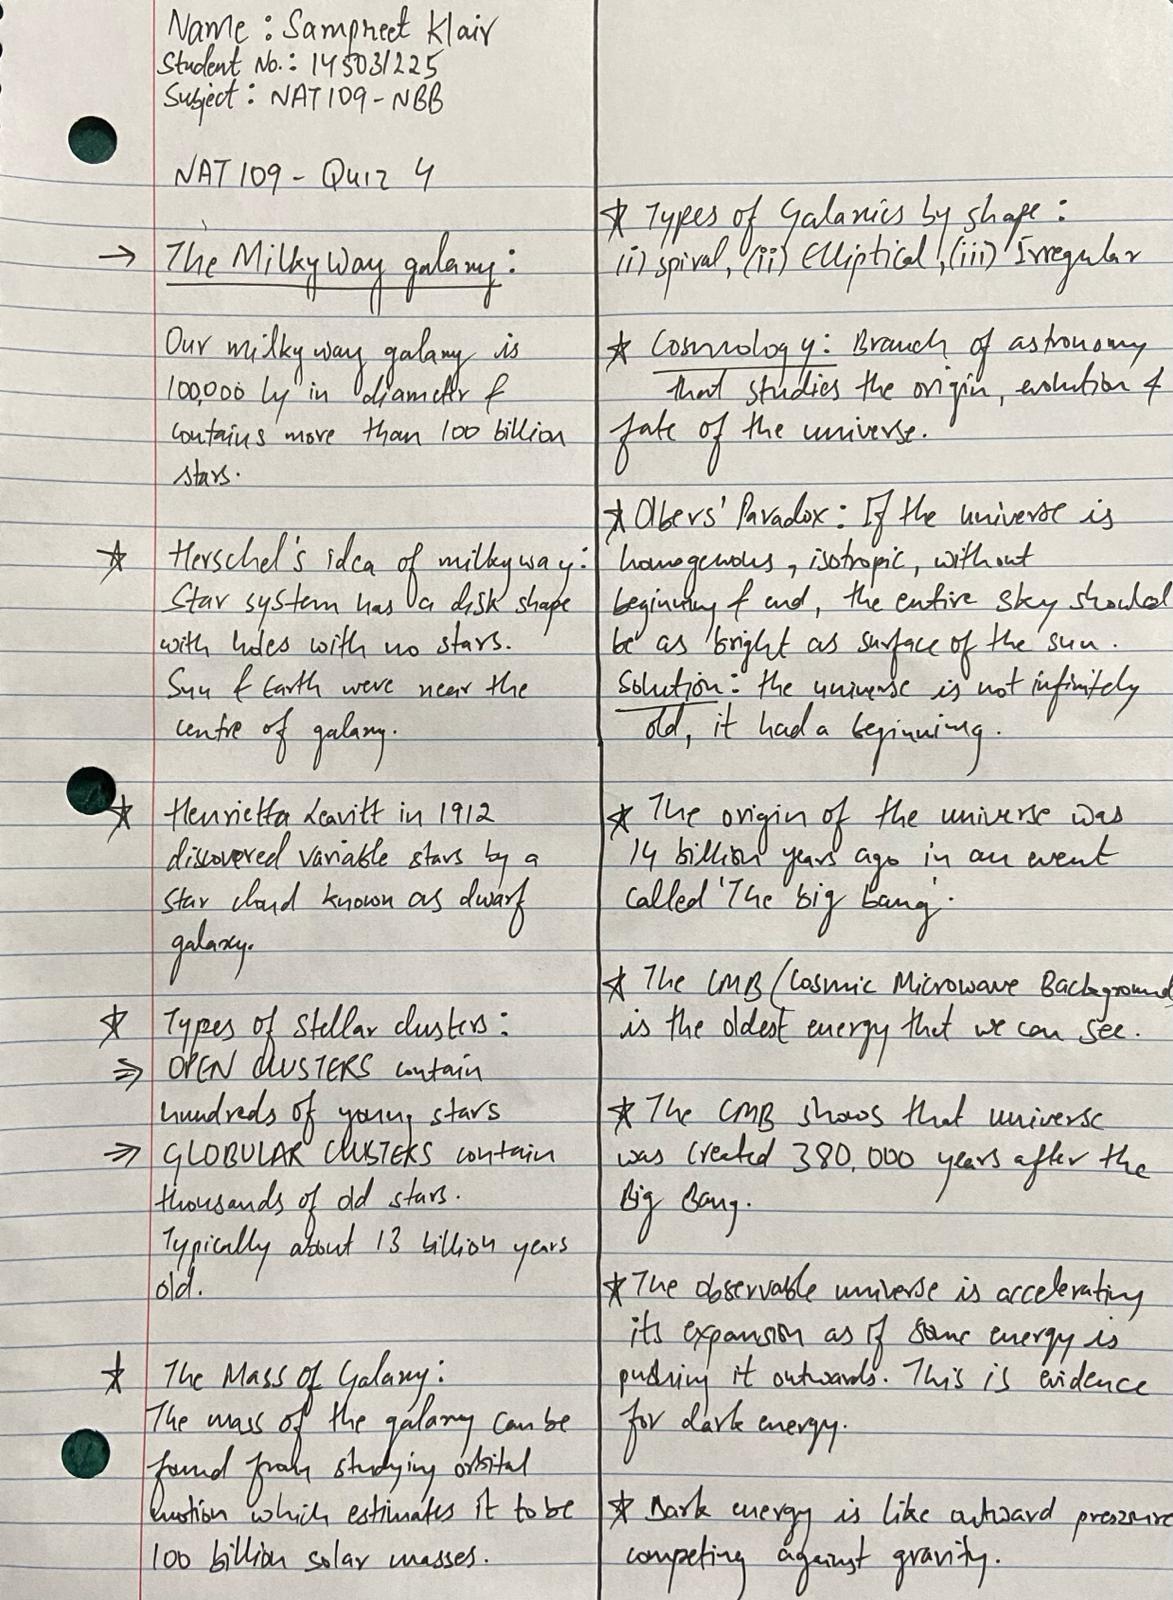 Name : Sampreet Klair
Student No.: 145031225
Subject : NAT109-NBB
NAT 109 - Quiz 4
→ The Milky Way galaxy :
Our milky way galaxy is
100,000 ly in diameter &
contains more than 100 billion
stars.
☆ Herschel's idea of milkyway:
Star system has a disk shape
with holes with no stars.
Sun & Earth were near the
centre of galaxy.
☆ Henrietta Leavitt in 1912
discovered variable stars by a
star cloud known as dwarf
galaxy.
☆ Types of Stellar clusters :
⇒ OPEN CLUSTERS contain
hundreds of young stars
⇒ GLOBULAR CLUSTERS contain
thousands of old stars.
Typically about 13 billion years
old.
☆ The Mass of Galaxy :
The mass of the galaxy can be
found from studying orbital
motion which estimates it to be
100 billion solar masses.
☆ Types of Galaxies by shape :
(i) spiral, (ii) Elliptical, (iii) Irregular
☆ Cosmology : Branch of astronomy
that studies the origin, evolution &
fate of the universe.
☆ Olbers' Paradox : If the universe is
homogenous, isotropic, without
beginning & end, the entire sky should
be as bright as surface of the sun.
Solution : the universe is not infinitely
old, it had a beginning.
☆ The origin of the universe was
14 billion years ago in an event
called 'The big bang'.
☆ The CMB (Cosmic Microwave Background
is the oldest energy that we can see.
☆ The CMB shows that universe
was created 380,000 years after the
Big Bang.
☆ The observable universe is accelerating
its expansion as if some energy is
pushing it outwards. This is evidence
for dark energy.
☆ Dark energy is like outward pressure
competing against gravity.